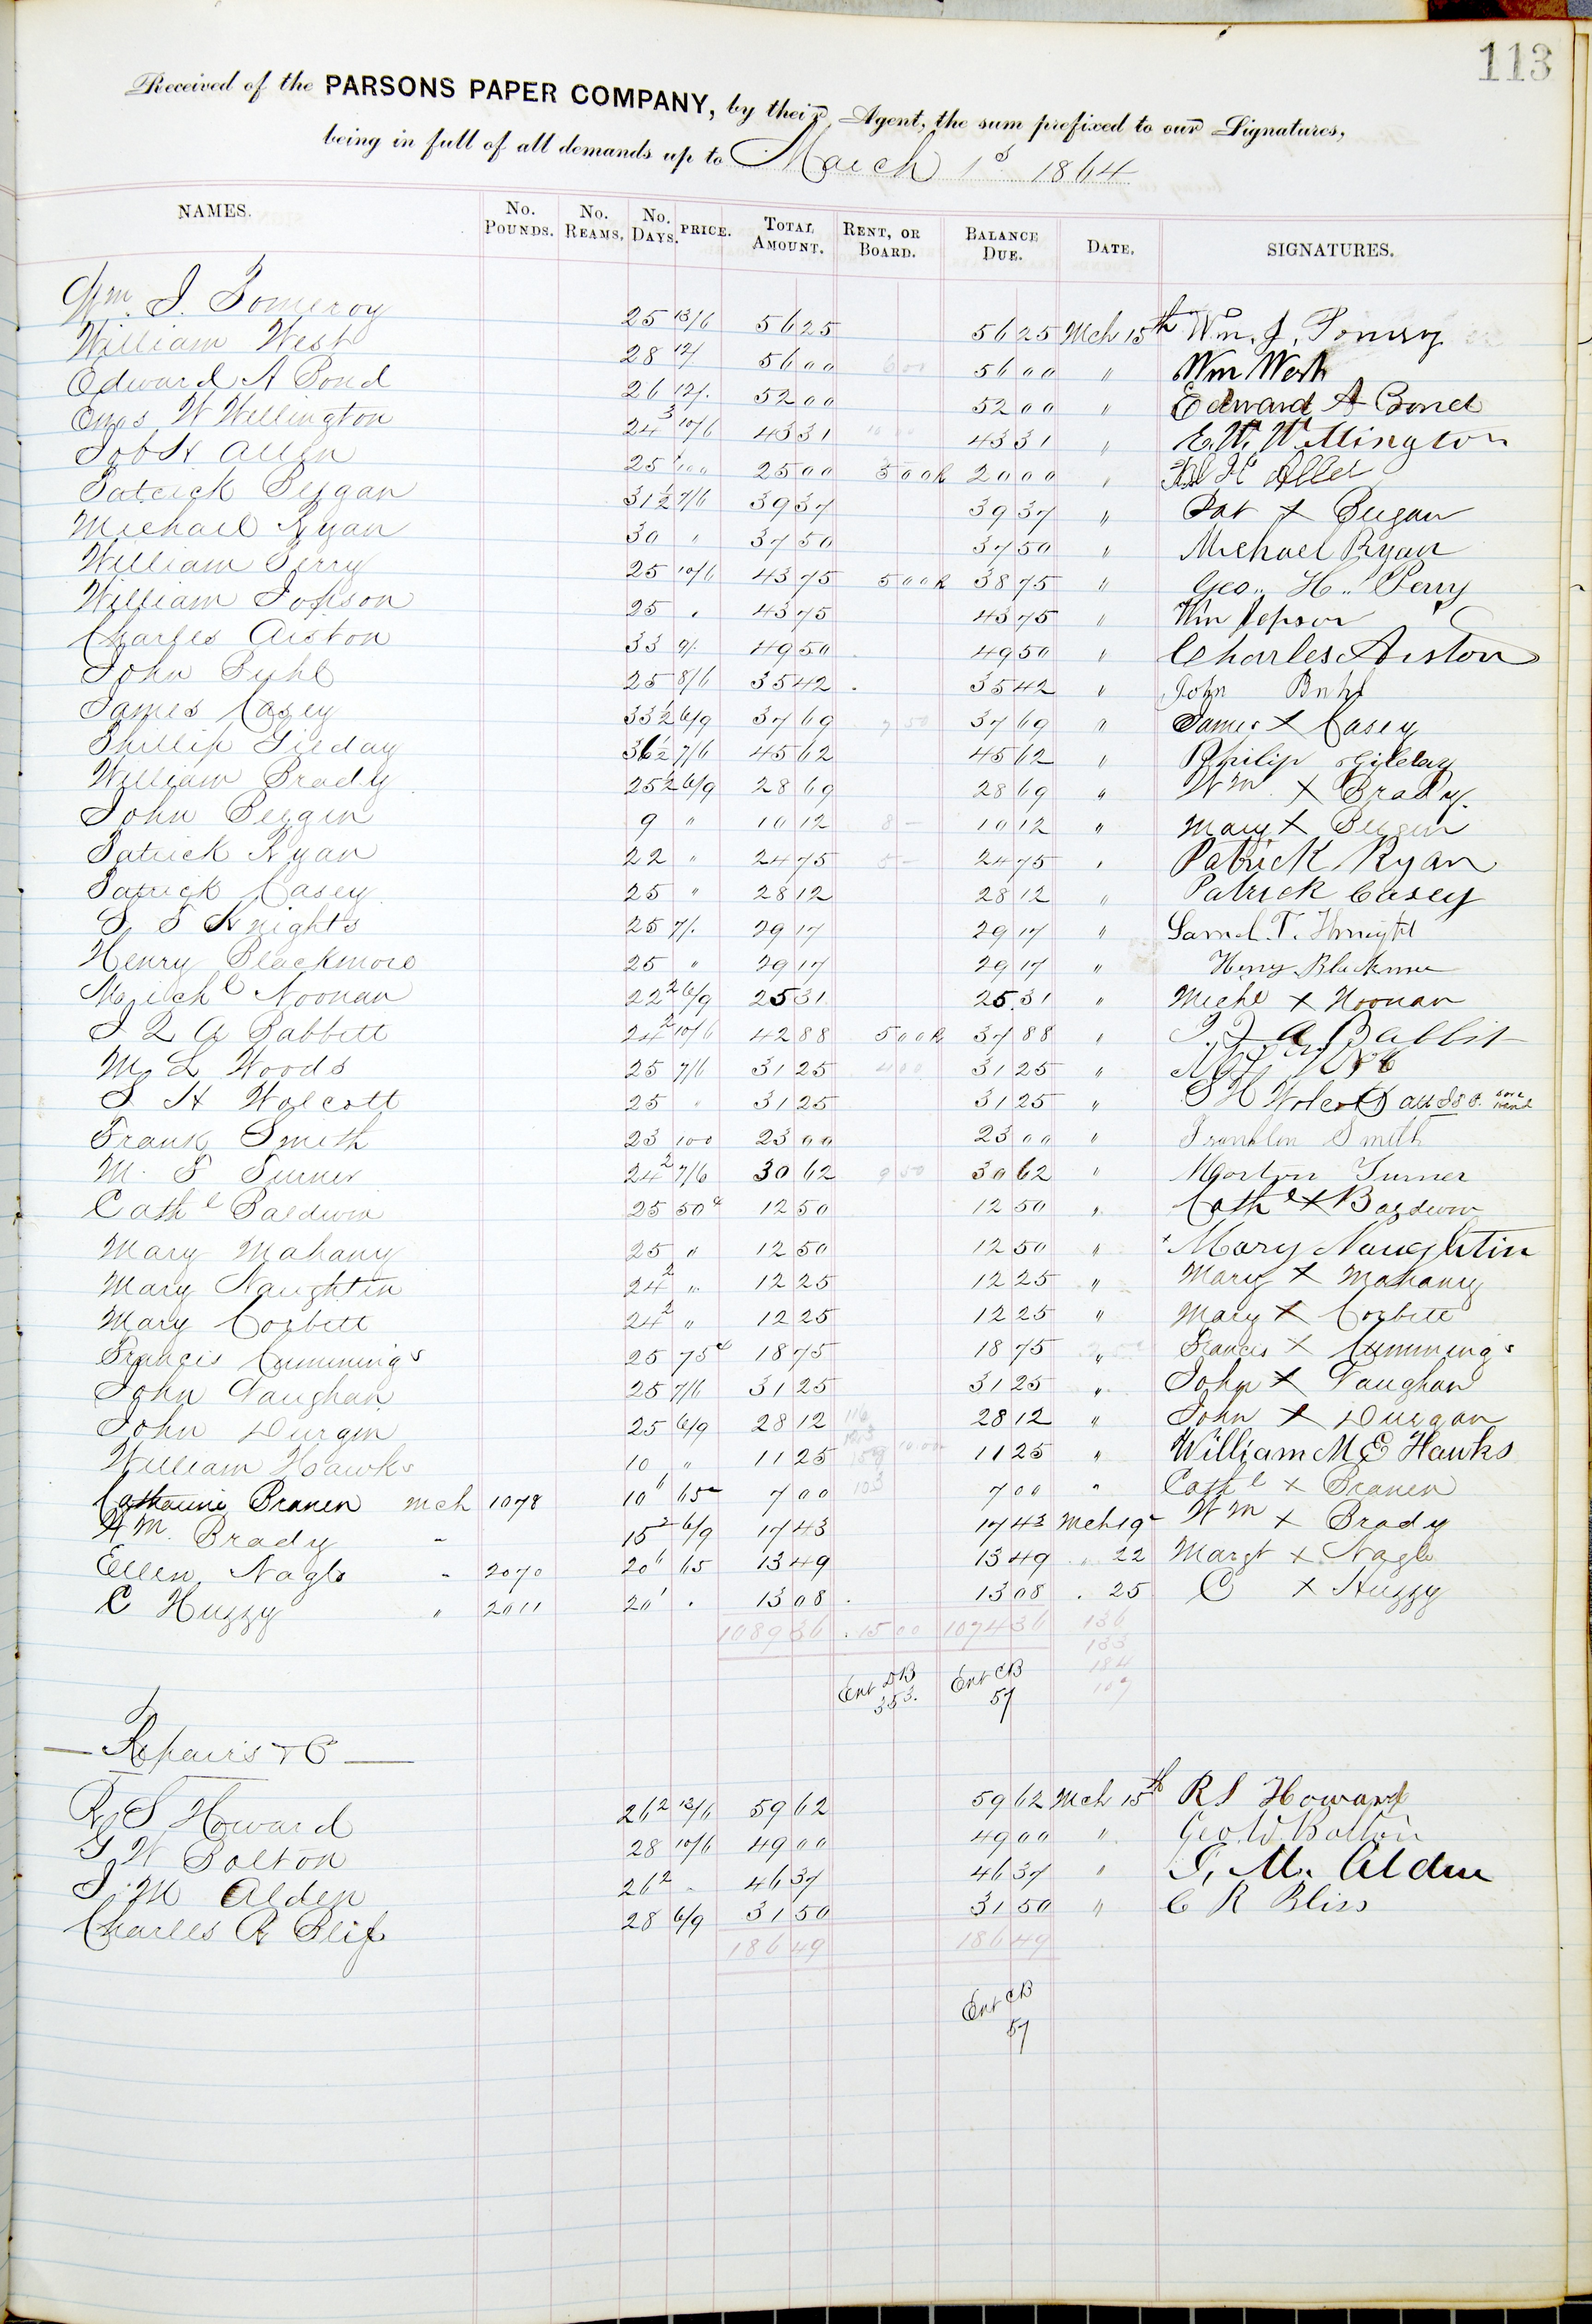 113
Received of the PARSONS PAPER COMPANY, by their Agent, the sum prefixed to our Signatures,
being in full of all demands up to March 1st 1864
NAMES. No. POUNDS. No. REAMS. No. DAYS. PRICE. TOTAL AMOUNT. RENT, OR BOARD. BALANCE DUE. DATE. SIGNATURES.
Wm. J. Pomeroy 25 13/6 56 25 56 25 Mch 15th Wm. J. Pomeroy
William West 28 12/ 56 00 6 00 56 00 " Wm West
Edward A Bond 26 12/. 52 00 52 00 " Edward A Bond
W Wellington 24 3 10/6 43 31 43 31 " E. W. Wellington
Job H Allen 25 100 25 00 5 00 R 20 00 " H Allen
Patrick Bergan 31½ 7/6 39 37 39 37 " Pat x Bergan
Michael Ryan 30 " 37 50 37 50 " Michael Ryan
William Perry 25 10/6 43 75 5 00 R 38 75 " Geo. H. Perry
William Jepson 25 . 43 75 43 75 " Wm Jepson
Charles Aiston 33 9/. 49 50 49 50 " Charles Aiston
John Buhl 25 8/6 35 42 . 35 42 " John Buhl
James Casey 33½ 6/9 37 69 7 50 37 69 " James x Casey
Phillip Gilday 36½ 7/6 45 62 45 62 " Philip Gilday
William Brady 25½ 6/9 28 69 28 69 " Wm x Brady.
John Bergin 9 " 10 12 8 – 10 12 " Mary x Bergin
Patrick Ryan 22 " 24 75 5 – 24 75 " Patrick Ryan
Patrick Casey 25 " 28 12 28 12 " Patrick Casey
S T Knights 25 7/. 29 17 29 17 " Saml. T. Knight
Henry Blackmore 25 " 29 17 29 17 " Henry Blackmore
Michl Noonan 22 2 6/9 25 31 25.31 " Michl x Noonan
J Q A Babbett 24 2 10/6 42 88 5 00 R 37 88 " J. Q A Babbit
M L Woods 25 7/6 31 25 4 00 31 25 "
S H Wolcott 25 " 31 25 31 25 " S H Wolcott
Frank Smith 23 100 23 00 23 00 " Franklin Smith
M. T Turner 24 2 7/6 30 62 9 50 30 62 " Morton Turner
Cathe Baldwin 25 50c 12 50 12 50 " Cathe x Baldwin
Mary Mahany 25 " 12 50 12 50 " Mary Naughtin
Mary Naughtin 24 2 " 12 25 12 25 " Mary x Mahany
Mary Corbett 24 2 " 12 25 12 25 " Mary x Corbett
Francis Cummings 25 75c 18 75 18 75 " Francis x Cummings
John Vaughan 25 7/6 31 25 31 25 " John x Vaughan
John Durgin 25 6/9 28 12 116 28 12 " John x Durgan
William Hawks 10 " 11 25 10.00 11 25 " William M E Hawks
Catharine Branen Mch 1078 10 65 7 00 103 7 00 " Cathe x Branen
Wm. Brady " 15 2 6/9 17 43 17 43 Mch 19 Wm x Brady
Ellen Nagle " 2070 20 65 13 49 13 49 " 22 Margt x Nagle
C Huzzy " 2011 20 . 13 08 . 13 08 . 25 C x Huzzy
1089 36 . 15 00 1074 36 136
133
184
109
Ent DB 353. Ent CB 57
— Repairs &C —
R S Howard 26 2 13/6 59 62 59 62 Mch 15th R S Howard
G W Bolton 28 10/6 49 00 49 00 " Geo. W. Bolton
J. M Alden 26 2 " 46 37 46 37 " J. M. Alden
Charles R Bliss 28 6/9 31 50 31 50 " C R Bliss
186 49 186 49
Ent CB
57